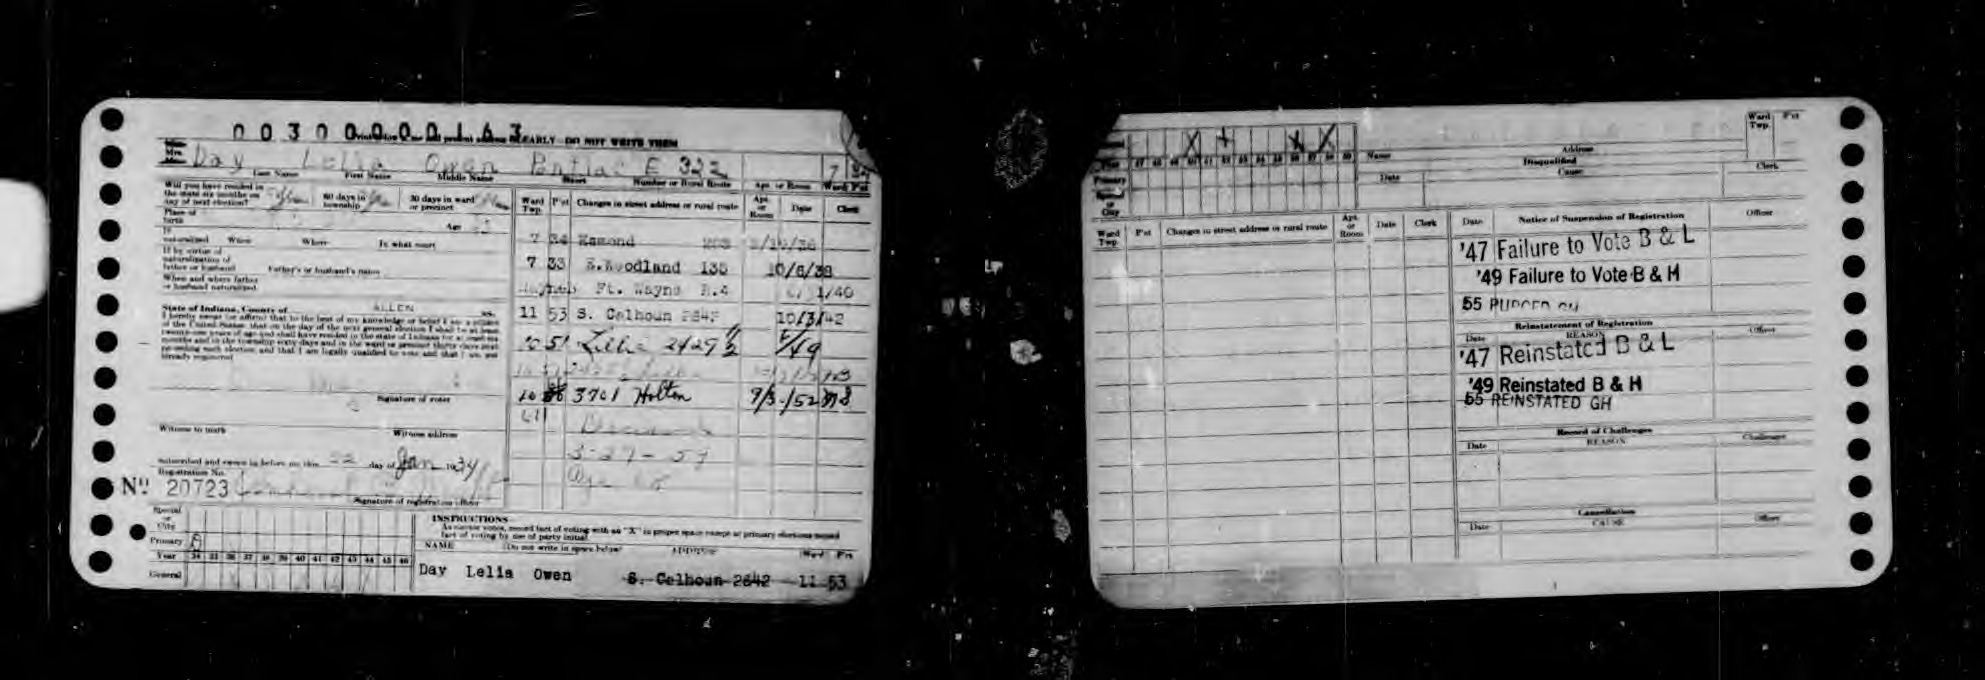 00300000163
EARLY - DO NOT WRITE THEM
Mrs.
Day Lelia Owen Pontiac E 322 7 34
Last Name First Name Middle Name Street Number or Rural Route Apt. or Room Ward Pct
Will you have resided in the state six months on day of next election? 60 days in township 30 days in ward or precinct
Place of birth Age
If naturalized When Where In what court
If by virtue of naturalization of father or husband Father's or husband's name
When and where father or husband naturalized
State of Indiana, County of ALLEN ss.
I hereby swear (or affirm) that to the best of my knowledge or belief I am a citizen of the United States; that on the day of the next general election I shall be at least twenty-one years of age and shall have resided in the state of Indiana for six months and in the township sixty days and in the ward or precinct thirty days next preceding such election and that I am legally qualified to vote and that I am not already registered
Signature of voter
Witness to mark Witness address
Subscribed and sworn to before me this 22 day of Jan 1934
Registration No.
No. 20723
Signature of registration officer
Ward Twp. P'ct Changes in street address or rural route Apt. or Room Date Clerk
7 34
7 33 E. Woodland 135 10/8/38
Ft. Wayne R.4 1/40
11 53 S. Calhoun 2642 10/3/42
10 51 Lillie 2429 1/2
10 3701 Holton 9/3/52
Deceased
3-27-57
Special or City
Primary
Year 34 35 36 37 38 39 40 41 42 43 44 45 46
General
INSTRUCTIONS
As elector votes, record fact of voting with an "X" in proper space except at primary elections record fact of voting by use of party initial.
NAME (Do not write in space below) ADDRESS Ward Pct
Day Lelia Owen S. Calhoun 2642 11 53
X X X
47 48 49 50 51 52 53 54 55 56 57 58 59
Primary
Special or City
Name Address
Ward Twp. P'ct
Disqualified
Date Cause Clerk
Ward Twp. P'ct Changes in street address or rural route Apt. or Room Date Clerk
Date Notice of Suspension of Registration Officer
'47 Failure to Vote B & L
'49 Failure to Vote B & H
55 PURGED GH
Reinstatement of Registration
Date REASON Officer
'47 Reinstated B & L
'49 Reinstated B & H
55 REINSTATED GH
Record of Challenges
Date REASON Challenger
Cancellation
Date CAUSE Officer